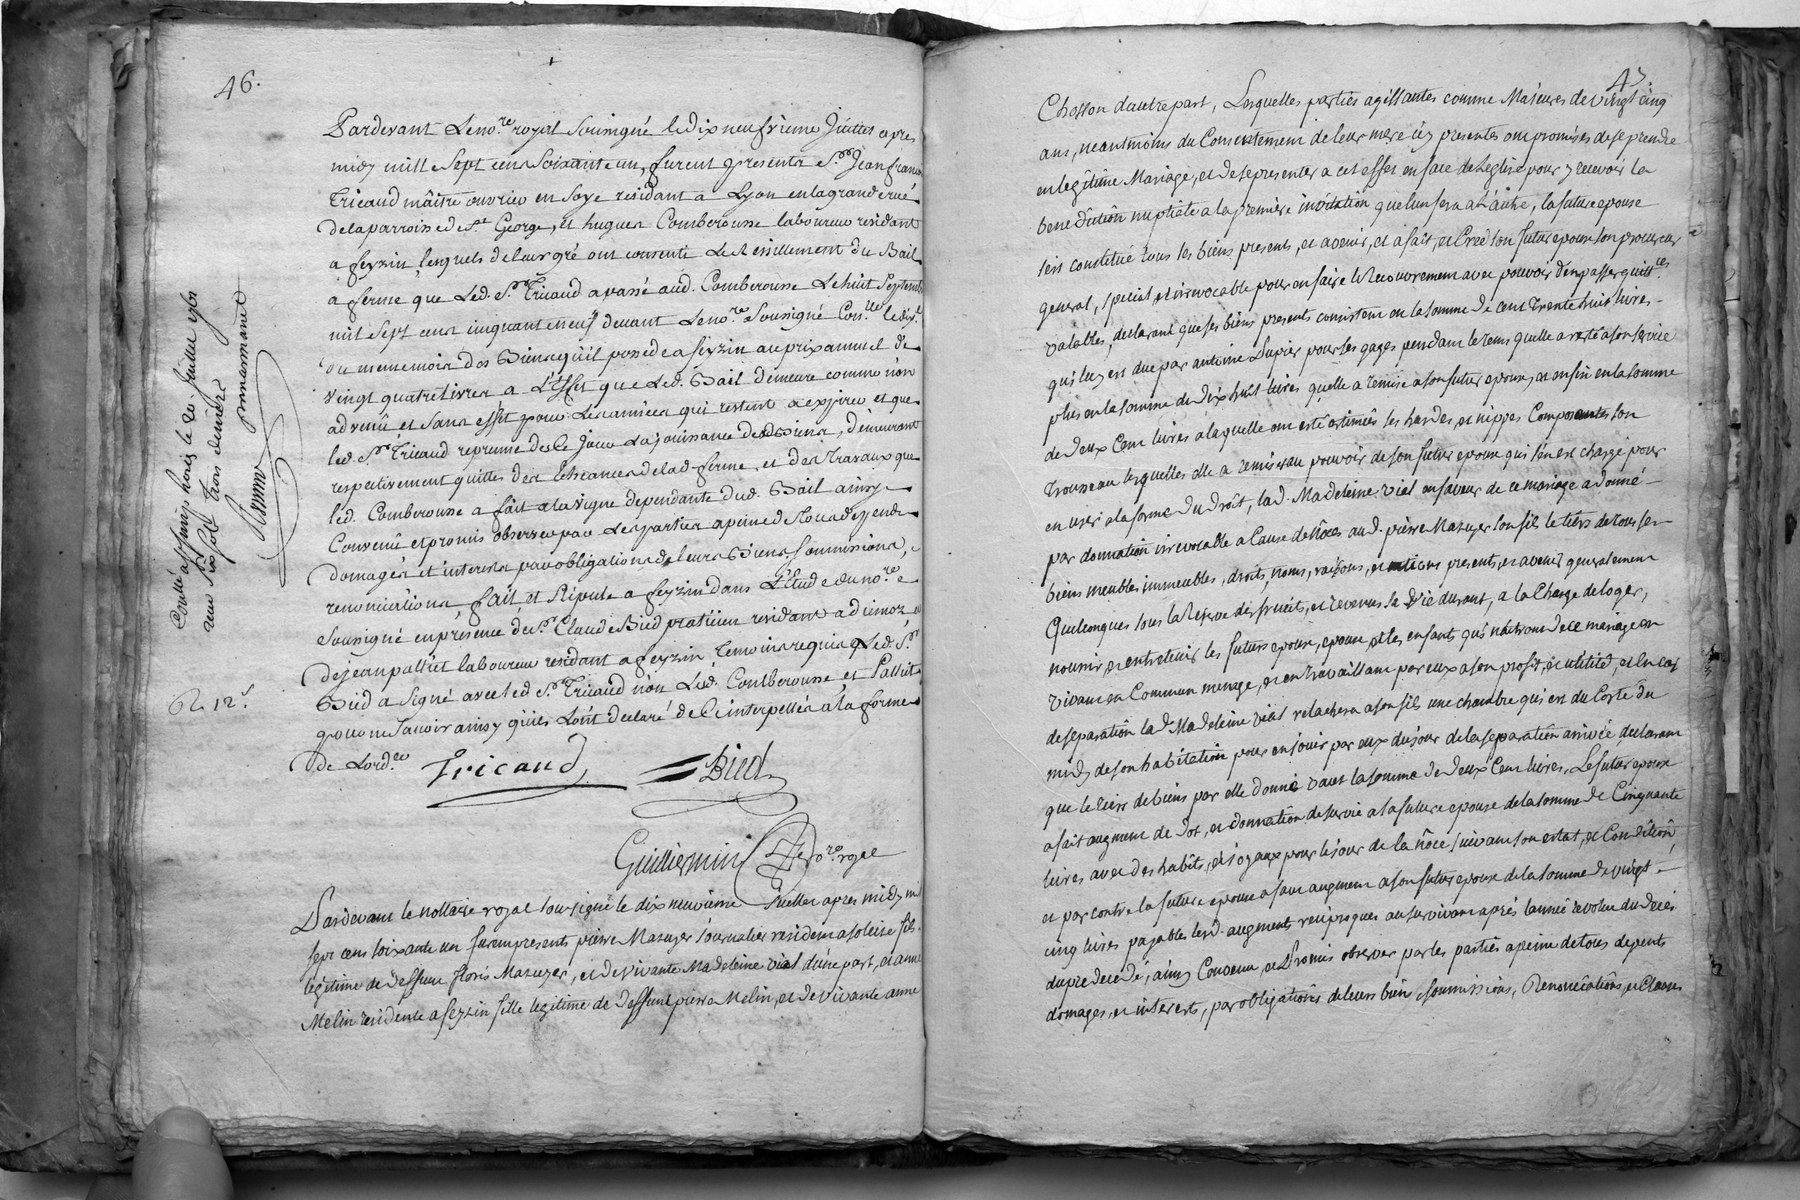 46.
Pardevant Le no.re royal Soussigné le dix neufvieme Juillet apres
midy mill Sept cens Soixante un, furent presents S.r Jean francois
Tricaud maître ouvrier en Soye residant a Lyon en la grande rue
de la parroisse de S.t George, et hugues Comberousse laboureur residant
a feyzin, lesquels de leur gré ont consenti Le Resillement du Bail
a ferme que Led. S.r Tricaud a passé aud. Comberousse Le huit Septembre
mil Sept cens cinquante neuf devant Le no.re Soussigné Con.lle le dix.e
du meme mois des Biens qu'il possede a feyzin au prix annuel de
vingt quatre livres a L'Effet que Led. Bail demeure comme non
advenû et Sans effet pour Les années qui restent a expirer et que
led. S.r Tricaud reprenne des ce Jour La jouissance desd. Biens, demeurant
respectivement quittes des Echeances de lad. ferme, et des travaux que
led. Comberousse a fait a la vigne dependante dud. Bail ainsy
Convenû et promis observer par Les parties a peine de Tous depends
domages et interets par obligations de leurs Biens Soumissions,
renonciations, fait et Stipulé a feyzin dans L'Etude du no.re
Soussigné en presence de S.r Claude Bied praticien residant a diemoz et
de jean pallliet laboureur residant a feyzin temoins requis Led. S.r
Bied a Signé avec led S.r Tricaud non Led. Comberousse et Palliet
pour ne Savoir ainsy qu'ils L'ont declaré de Ce interpellés a la forme
de Lord.ce
Tricaud Bied
Guilliermin no.re royal
Conllé a St Simp.hor.s le 20. Juillet 1761
reçu Six Sols trois deniers
6 L 12 s.
Pardevant le nottaire royal soussigné le dix neuvieme Juillet apres midy mil
sept cens soixante un furent presents pierre Mazuyer journalier resident a solaise fils
legitime de deffunt floris Mazuyer, et de vivante Madeleine vial d'une part, et anne
Melin residente a feyzin fille legitime de deffunt pierre Melin, et de vivante anne
47
Chosson d'autre part, Lesquelles parties agissantes comme Majeures de vingt cinq
ans, neantmoins du Consentement de leur mere icy presentes ont promises de se prendre
en legitime Mariage, et de se presenter a cet effet en face de Leglise pour y recevoir la
benediction nuptiale a la premiere invitation que l'un fera a L'autre, la future epouse
s'est constitué tous ses biens presents, et avenir, et a fait, et Créé son futur epoux son procureur
general, special et irrevocable pour en faire le Recouvrement avec pouvoir d'en passer quitt.ces
valables, declarant que ses biens presents consistent en la somme de cent trente huit livres
qui luy est due par antoine Dupier pour ses gages pendant le tems quelle a resté a son service
plus en la somme de dix huit livres quelle a remise a son futur epoux, et enfin en la somme
de deux Cent livres a laquelle ont esté estimées ses hardes, et nippes Composants son
Trousseau lesquelles elle a remis au pouvoir de son futur epoux qui s'en est chargé pour
en user a la forme du droit, la d. Madeleine vial en faveur de ce mariage a donné
par donnation irrevocable a Cause de Nôces aud. pierre Mazuyer son fils le tiers de tous ses
biens meubles immeubles, droits, noms, raisons, et actions presents, et avenir generalement
Quelconques sous la Reserve des fruits, et revenus sa vie durant, a la Charge de loger,
nourrir, et entretenir les futurs epoux, epouse, et les enfants qui naitront de ce mariage en
vivant en Commun menage, et en travaillant par eux a son profit, et utilité, et en cas
de separation la d.e Madeleine vial relachera a son fils une chambre qui est du Costé du
midy de son habitation pour en jouir par eux du jour de la separation arrivée, declarant
que le tiers de biens par elle donné vaut la somme de deux Cent livres. Le futur epoux
a fait augment de dot, et donnation de survie a la future epouse de la somme de Cinquante
livres avec des habits, et joyaux pour le jour de la nôce suivant son estat, et Condition
et par contre la future epouse a fait augment a son futur epoux de la somme de vingt
cinq livres payables lesd. augments reciproques au survivant aprés l'année revolue du deces
du predecedé, ainsy Convenu, et Promis observer par les parties a peine de tous depents
domages, et interests, par obligations de leurs biens soumissions, Renonciations, et Clauses